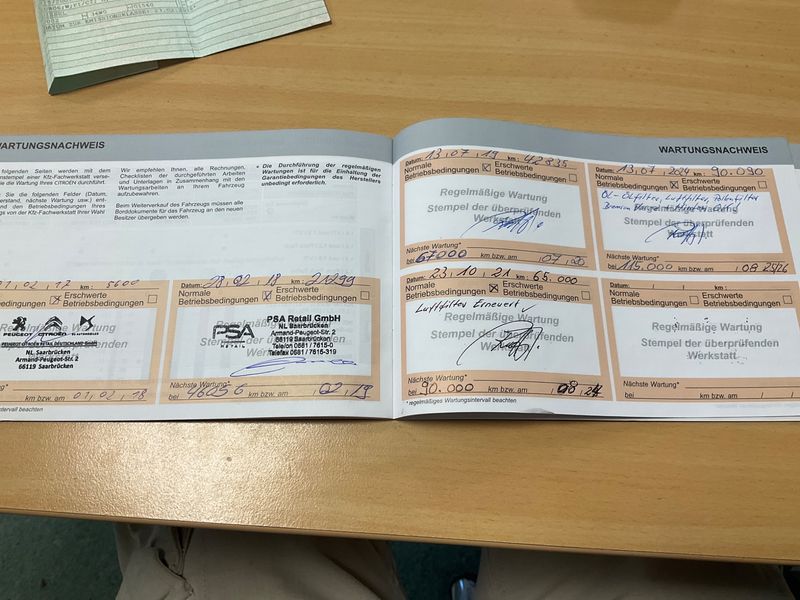 WARTUNGSNACHWEIS
folgenden Seiten werden mit dem
nstempel einer Kfz-Fachwerkstatt verse-
e die Wartung Ihres CITROËN durchführt.
Sie die folgenden Felder (Datum,
erstand, nächste Wartung usw.) ent-
den Betriebsbedingungen Ihres
gs von der Kfz-Fachwerkstatt Ihrer Wahl
Wir empfehlen Ihnen, alle Rechnungen,
Checklisten der durchgeführten Arbeiten
und Unterlagen in Zusammenhang mit den
Wartungsarbeiten an Ihrem Fahrzeug
aufzubewahren.
Beim Weiterverkauf des Fahrzeugs müssen alle
Borddokumente für das Fahrzeug an den neuen
Besitzer übergeben werden.
* Die Durchführung der regelmäßigen
Wartungen ist für die Einhaltung der
Garantiebedingungen des Herstellers
unbedingt erforderlich.
02, 17 km: 5600
Erschwerte
Betriebsbedingungen
PEUGEOT CITROËN
PEUGEOT CITROËN RETAIL DEUTSCHLAND GmbH
NL Saarbrücken
Armand-Peugeot-Str. 2
66119 Saarbrücken
km bzw. am 01, 02, 18
ervall beachten
Datum: 28, 02, 18 km: 21299
Normale Erschwerte
Betriebsbedingungen Betriebsbedingungen
PSA RETAIL
PSA Retail GmbH
NL Saarbrücken
Armand-Peugeot-Str. 2
66119 Saarbrücken
Telefon 0681 / 7615-0
Telefax 0681 / 7615-319
Nächste Wartung*
bei 46256 km bzw. am 02, 19
WARTUNGSNACHWEIS
Datum: 13, 07, 19 km: 42835
Normale Erschwerte
Betriebsbedingungen Betriebsbedingungen
Regelmäßige Wartung
Stempel der überprüfenden
Werkstatt
Nächste Wartung*
bei 67000 km bzw. am 07, 20
Datum: 13, 07, 2024 km: 90.090
Normale Erschwerte
Betriebsbedingungen Betriebsbedingungen
Öl-Ölfilter, Luftfilter, Pollenfilter
Regelmäßige Wartung
Stempel der überprüfenden
Werkstatt
Nächste Wartung*
bei 115.000 km bzw. am 08 25/26
Datum: 23, 10, 21 km: 65.000
Normale Erschwerte
Betriebsbedingungen Betriebsbedingungen
Luftfilter Erneuert
Regelmäßige Wartung
Stempel der überprüfenden
Werkstatt
Nächste Wartung*
bei 90.000 km bzw. am 08, 24
Datum: / / km:
Normale Erschwerte
Betriebsbedingungen Betriebsbedingungen
Regelmäßige Wartung
Stempel der überprüfenden
Werkstatt
Nächste Wartung*
bei km bzw. am / /
* regelmäßiges Wartungsintervall beachten